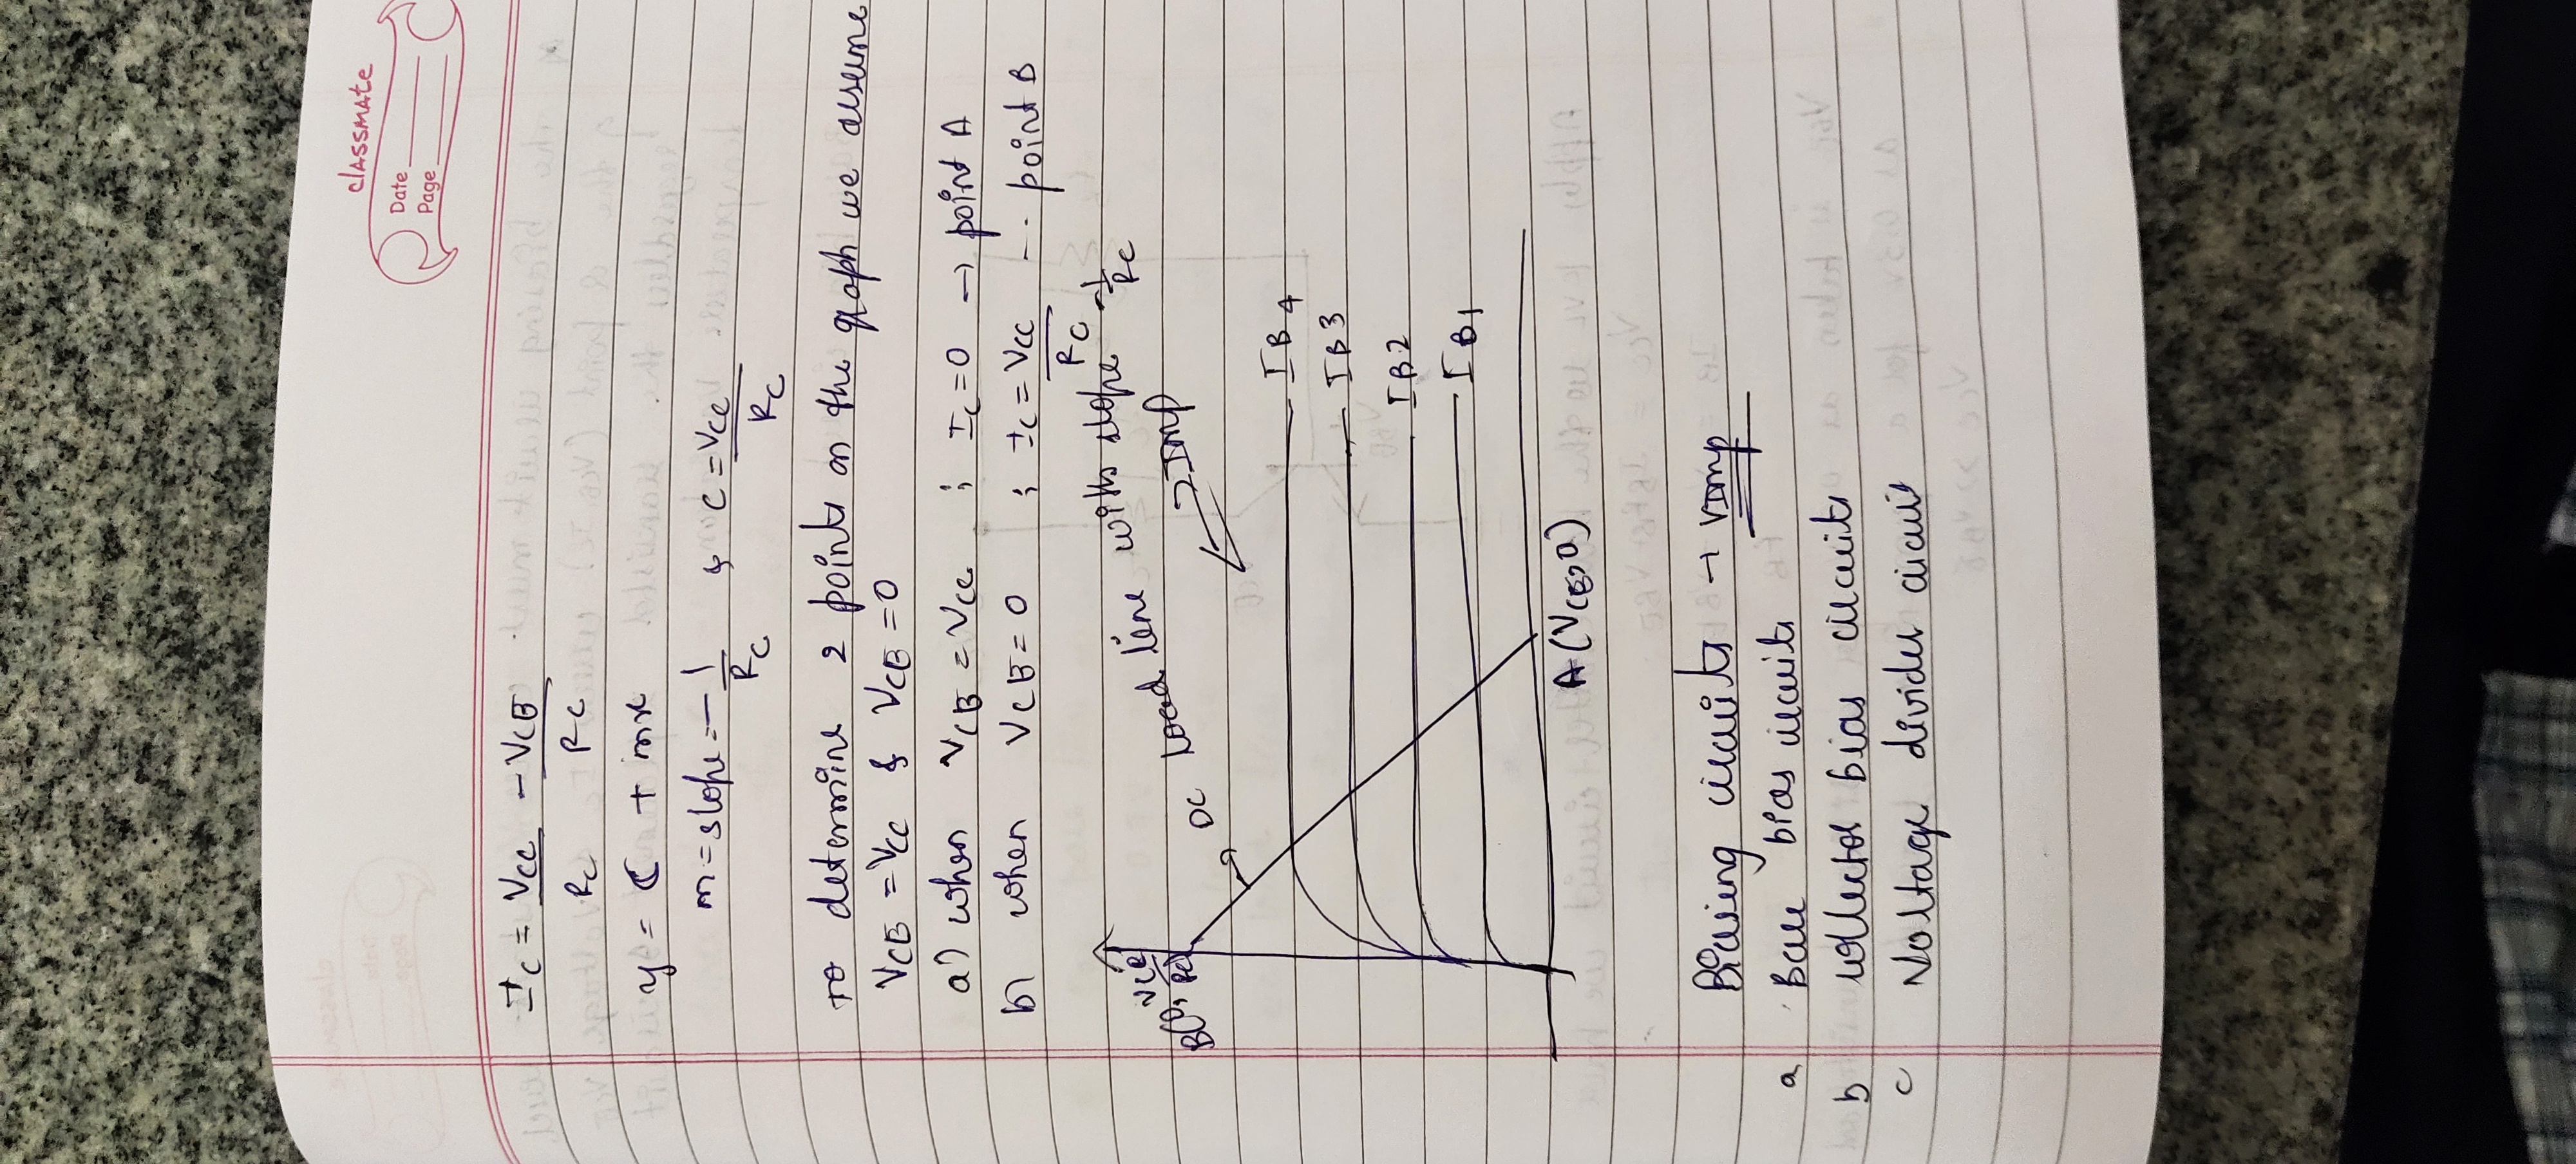 classmate
Date
Page
IC = VCC/RC - VCE/RC
y = C + mx
m = slope = - 1/RC & C = VCC/RC
to determine 2 points on the graph we assume
VCE = VCC & VCE = 0
a) when VCE = VCC ; IC = 0 → point A
b) when VCE = 0 ; IC = VCC/RC -- point B
DC Load line with slope -1/RC
→ Imp
IB4
IB3
IB2
IB1
A (VCE, 0)
Biasing circuits → VImp
a Base bias circuits
b collector bias circuits
c Voltage divider circuit